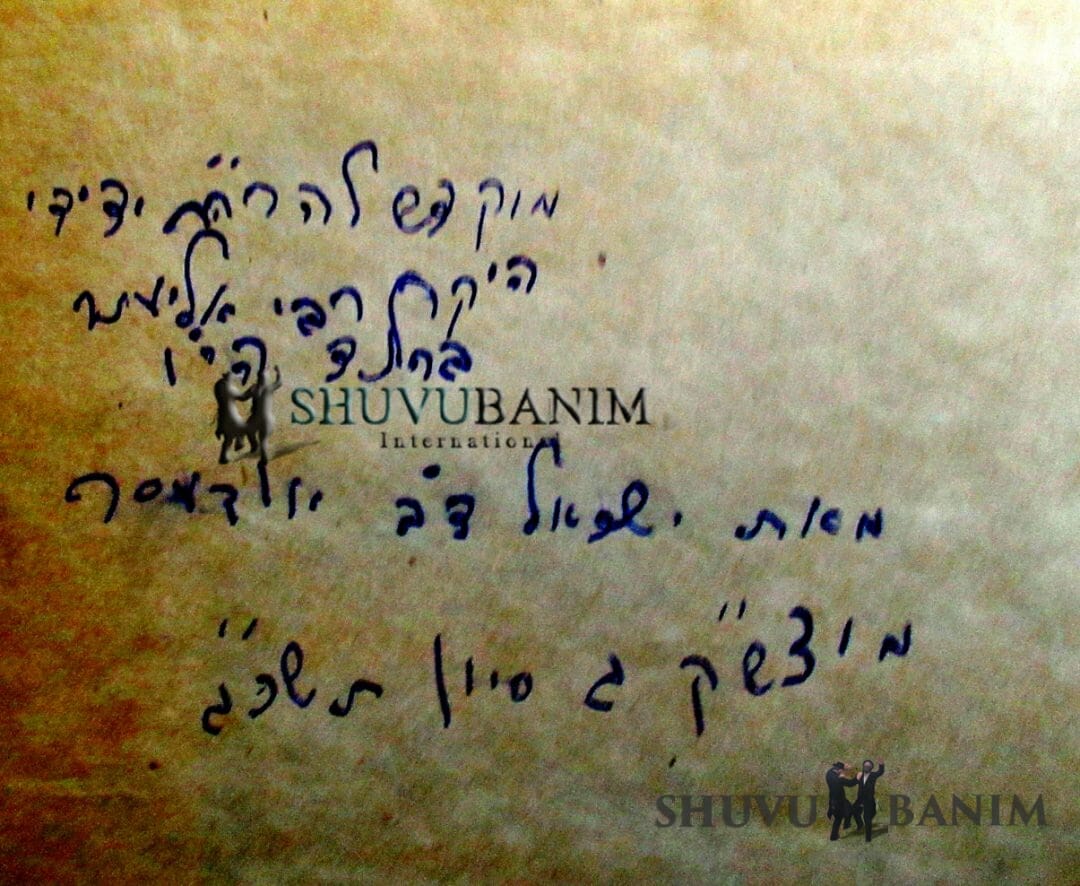 מוקדש להרה"ח ידידי
היקר רבי אליעזר
ברלנד הי"ו
SHUVUBANIM
International
מאת ישראל דב אודעסר
מוצש"ק ג סיון תשכ"ג
SHUVU BANIM